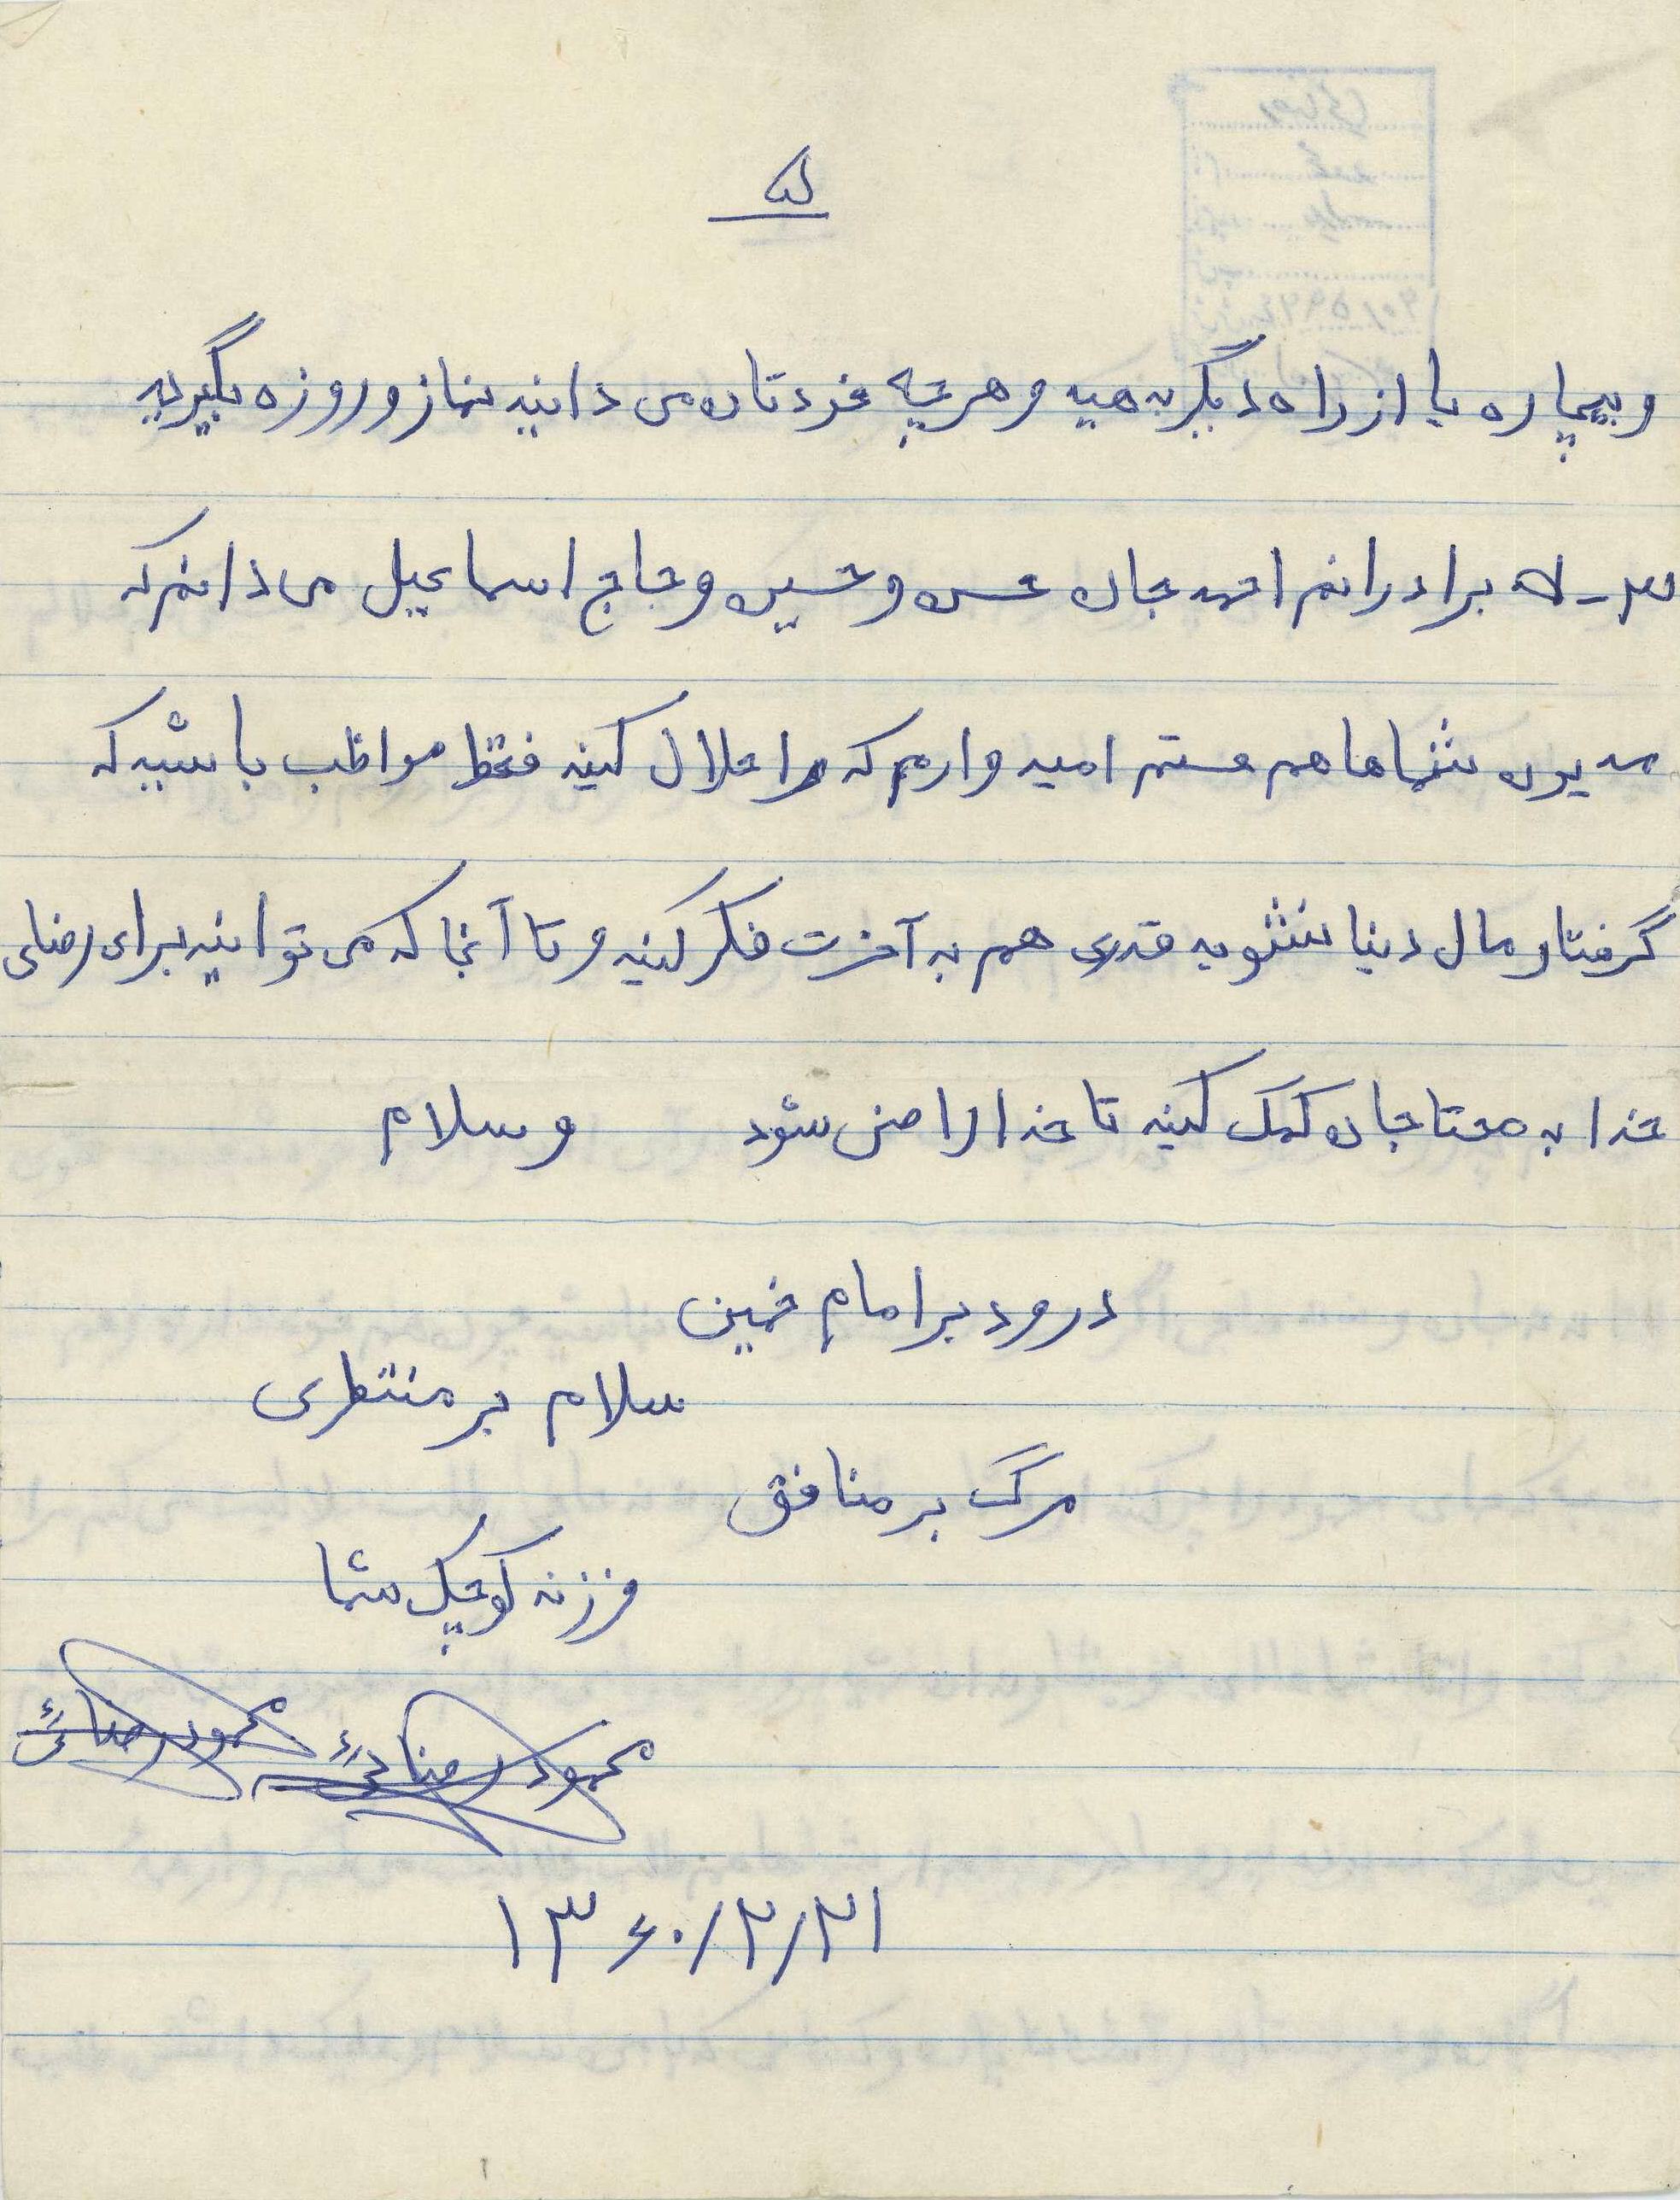 ۵
و بیچاره یا از راه دیگر بدهید و هر چه خودتان می دانید نماز و روزه بگیرید
برادرانم احمد جان حسن و حسین و حاج اسماعیل می دانم که
مدیون شماها هم هستم امیدوارم که مرا حلال کنید فقط مواظب باشید که
گرفتار مال دنیا نشوید قدری هم به آخرت فکر کنید و تا آنجا که می توانید برای رضای
خدا به محتاجان کمک کنید تا خدا راضی شود و سلام
درود بر امام خمینی
سلام بر منتظری
مرگ بر منافق
فرزند کوچک شما
محمود رضائی محمود رضائی
۱۳۶۰/۲/۲۱